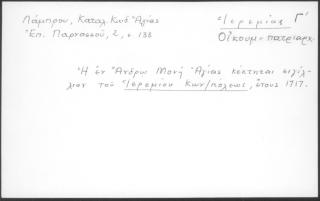 Λάμπρου, Καταλ. Κωδ. Ἁγίας
Ἐπ. Παρνασσοῦ, 2, σ 138
Ἱερεμίας Γ΄
Οἰκουμ. πατριάρχ.
Ἡ ἐν Ἄνδρῳ Μονή Ἁγίας κέκτηται σιγίλ-
λιον τοῦ Ἱερεμίου Κων/πόλεως, ἔτους 1717.